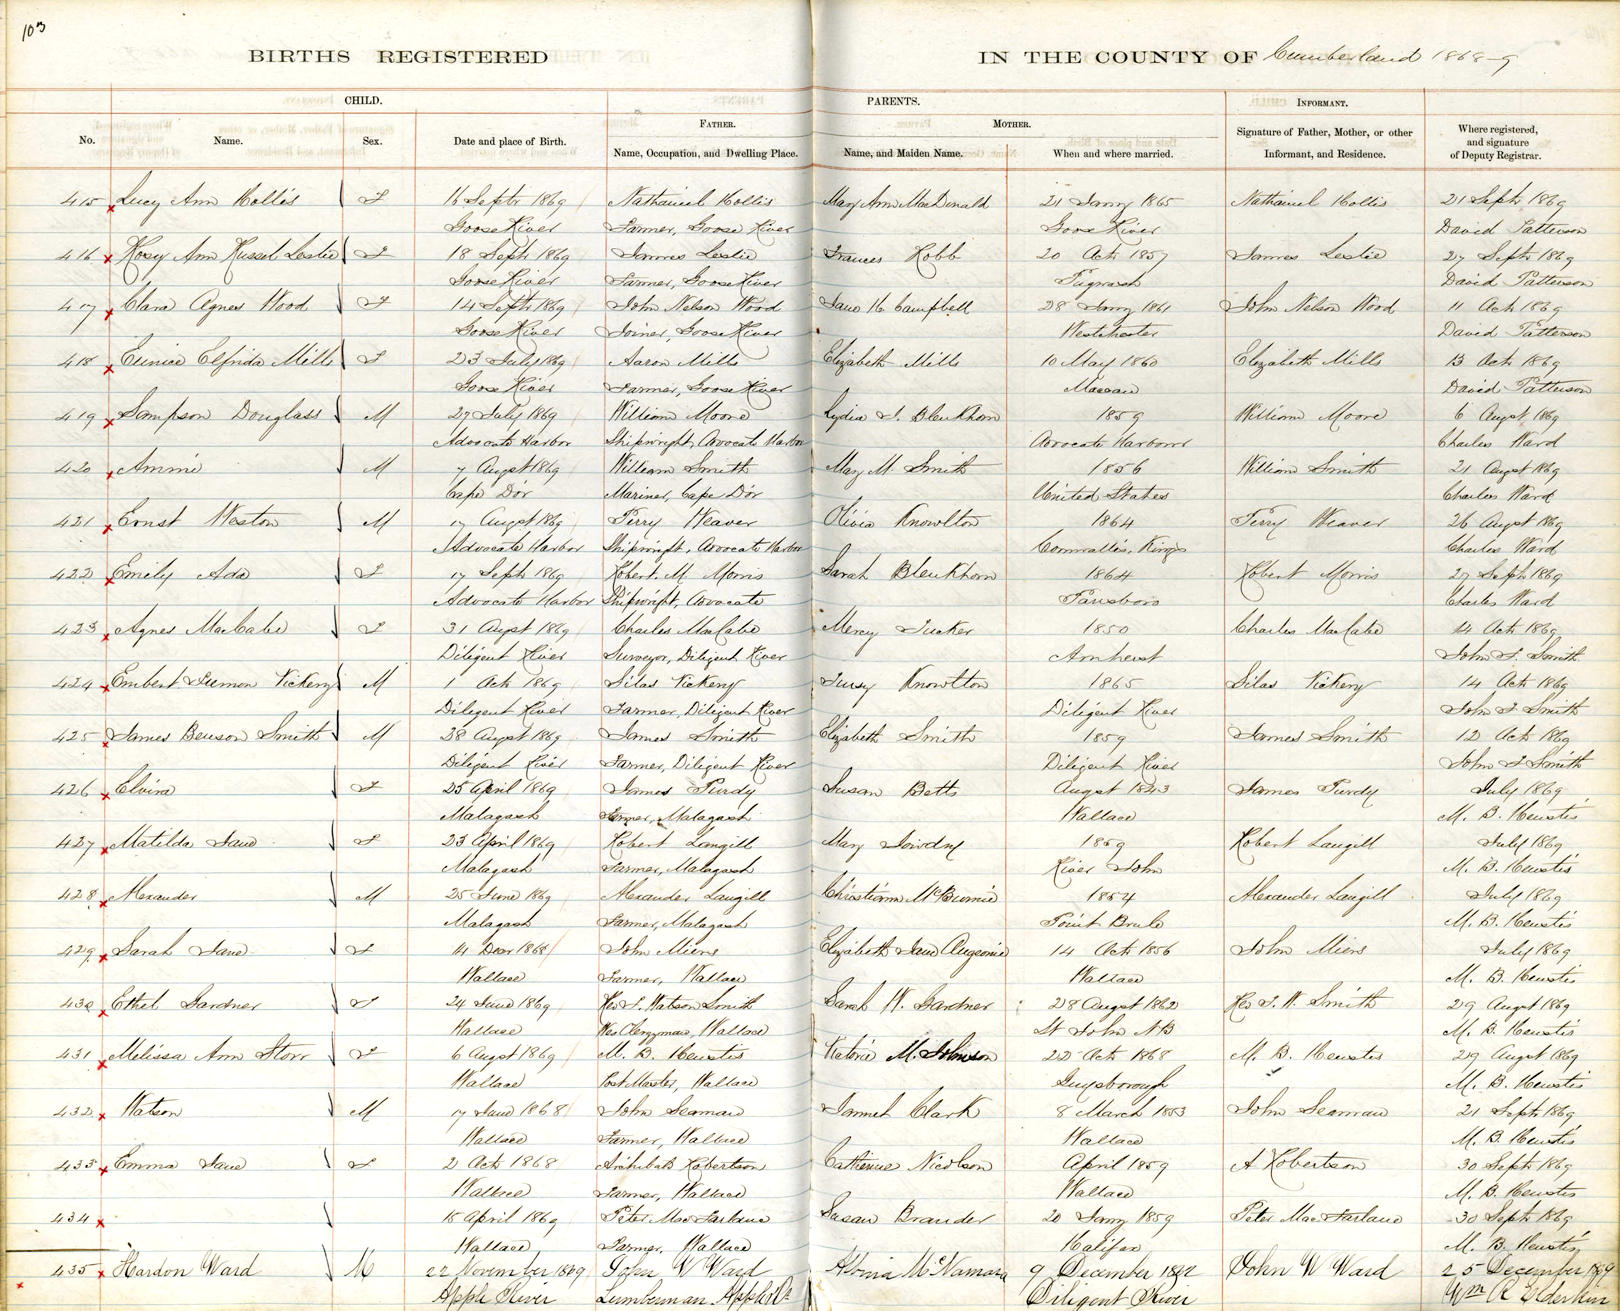 103
BIRTHS REGISTERED IN THE COUNTY OF Cumberland 1868-9
CHILD. PARENTS. INFORMANT.
FATHER. MOTHER.
No. Name. Sex. Date and place of Birth. Name, Occupation, and Dwelling Place. Name, and Maiden Name. When and where married. Signature of Father, Mother, or other Informant, and Residence. Where registered, and signature of Deputy Registrar.
415 Lucy Ann Hollis F 16 Septr 1869 Nathaniel Hollis Mary Ann MacDonald 21 Jany 1865 Nathaniel Hollis 21 Septr 1869
Goose River Farmer, Goose River Goose River David Patterson
416 Rosey Ann Russel Leslie F 18 Septr 1869 James Leslie Frances Robb 20 Oct 1857 James Leslie 27 Septr 1869
Goose River Farmer, Goose River Pugwash David Patterson
417 Clara Agnes Wood F 14 Septr 1869 John Nelson Wood Jane H. Campbell 28 Jany 1861 John Nelson Wood 11 Oct 1869
Goose River Joiner, Goose River Westchester David Patterson
418 Eunice Elfrida Mills F 23 July 1869 Aaron Mills Elizabeth Mills 10 May 1860 Elizabeth Mills 13 Oct 1869
Goose River Farmer, Goose River Maccan David Patterson
419 Sampson Douglass M 27 July 1869 William Moore Lydia J. Blenkhorn 1859 William Moore 6 Augst 1869
Advocate Harbor Shipwright, Avocate Harbor Avocate Harbour Charles Ward
420 Ammi M 7 Augst 1869 William Smith Mary M. Smith 1856 William Smith 21 Augst 1869
Cape D'or Mariner, Cape D'or United States Charles Ward
421 Ernst Weston M 17 Augst 1869 Perry Weaver Olivia Knowlton 1864 Perry Weaver 26 Augst 1869
Advocate Harbor Shipwright, Avocate Harbor Cornwallis, Kings Charles Ward
422 Emily Ada F 17 Septr 1869 Robert. M. Morris Sarah Blenkhorn 1864 Robert Morris 27 Septr 1869
Advocate Harbor Shipwright, Avocate Parrsboro Charles Ward
423 Agnes MacCabe F 31 Augst 1869 Charles MacCabe Mercy Tucker 1850 Charles MacCabe 14 Oct 1869
Diligent River Surveyor, Diligent River Amherst John F. Smith
424 Embert Vickery M 1 Oct 1869 Silas Vickery Knowlton 1865 Silas Vickery 14 Oct 1869
Diligent River Farmer, Diligent River Diligent River John F Smith
425 James Benson Smith M 28 Augst 1869 James Smith Elizabeth Smith 1859 James Smith 12 Oct 1869
Diligent River Farmer, Diligent River Diligent River John F Smith
426 Elvira F 25 April 1869 James Purdy Susan Betts Augst 1843 James Purdy July 1869
Malagash Farmer, Malagash Wallace M. B. Heustis
427 Matilda Jane F 23 April 1869 Robert Langill Mary 1859 Robert Langill July 1869
Malagash Farmer, Malagash River John M. B. Heustis
428 Alexander M 25 June 1869 Alexander Langill Christiann McBurnie 1854 Alexander Langill July 1869
Malagash Farmer, Malagash Point Brule M. B. Heustis
429 Sarah Jane F 14 Decr 1868 John Miens Elizabeth Jane 14 Oct 1856 John Miens July 1869
Wallace Farmer, Wallace Wallace M. B. Heustis
430 Ethel Gardner F 24 June 1869 Rev J. Watson Smith Sarah W. Gardner 28 Augst 1862 Rev J. W. Smith 29 Augst 1869
Wallace Wes Clergyman, Wallace St John NB M. B. Heustis
431 Melissa Ann Storr F 6 Augst 1869 M. B. Heustis Victoria M. Johnson 22 Oct 1868 M. B. Heustis 29 Augst 1869
Wallace Post Master, Wallace Guysborough M. B. Heustis
432 Watson M 17 June 1868 John Seaman Clark 8 March 1853 John Seaman 21 Septr 1869
Wallace Farmer, Wallace Wallace M. B. Heustis
433 Emma Jane F 2 Oct 1868 Archibald Robertson Catherine Nicolson April 1859 A Robertson 30 Septr 1869
Wallace Farmer, Wallace Wallace M. B. Heustis
434 15 April 1869 Peter MacFarlane Susan Brander 20 Jany 1859 Peter MacFarlane 30 Septr 1869
Wallace Farmer, Wallace Halifax M. B. Heustis
435 Hardon Ward M 22 November 1869 John W Ward McNamara 9 December 1862 John W Ward 25 December 1869
Apple River Lumberman Apple Rr Diligent River Wm R Elderkin